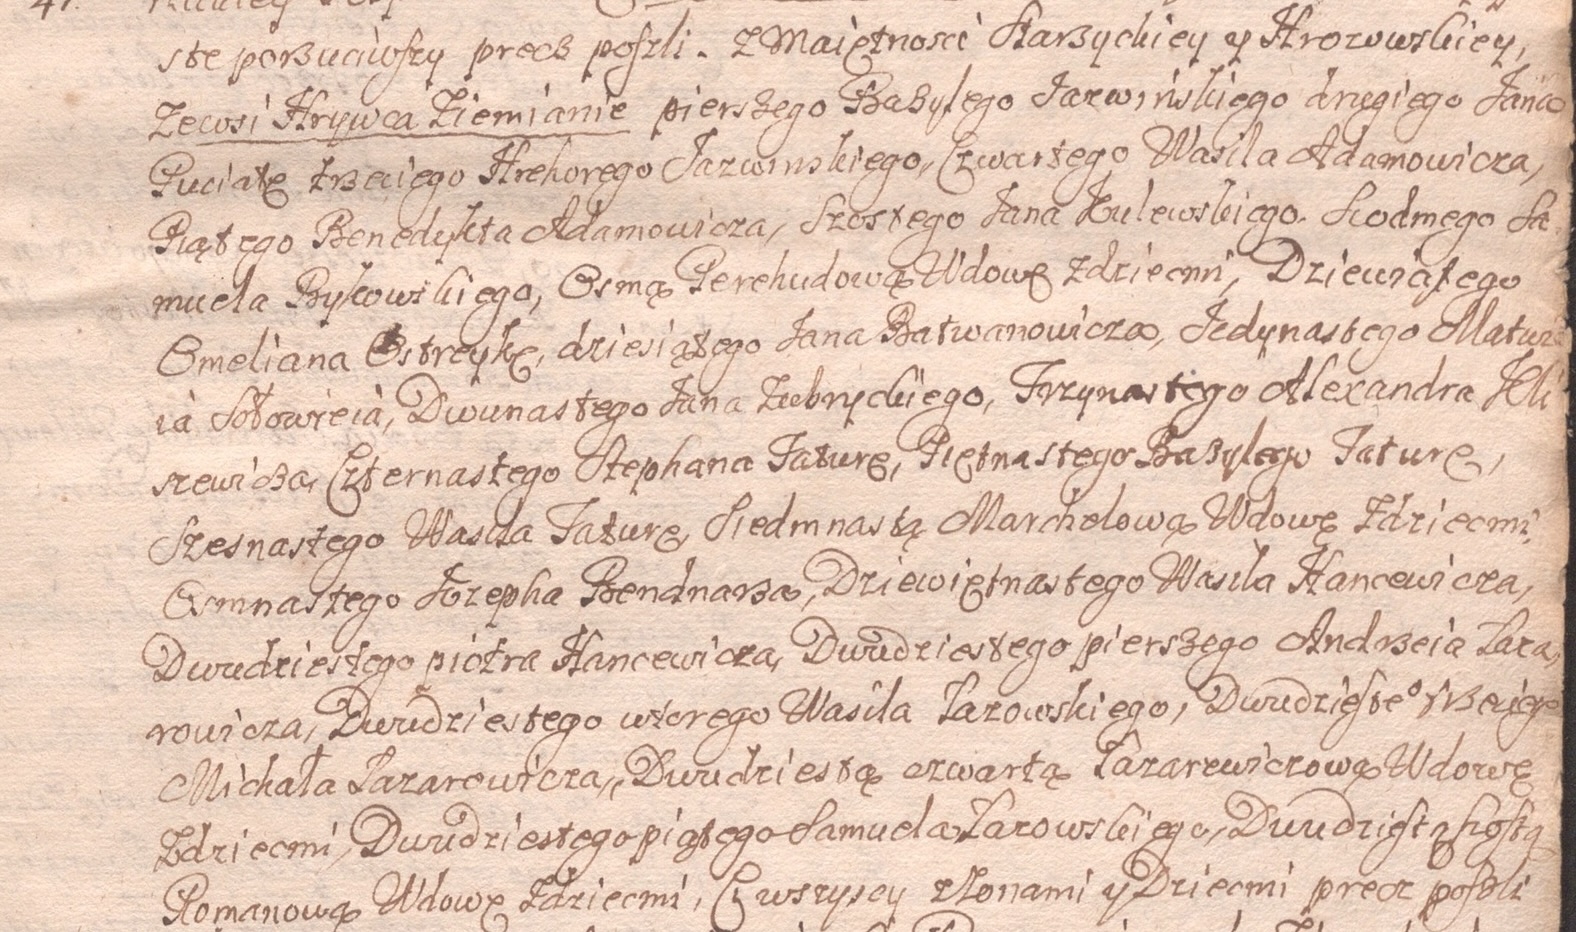 ste porzuciwszy precz poszli. Z Maiętnosci Starzyckiey y Hrozowskiey,
Zewsi Hrywca Ziemianie pierszego Bazylego Jazwińskiego drugiego Jana
Puciatę trzeciego Hrehorego Jazwinskiego, Czwartego Wasila Adamowicza,
Piątego Benedykta Adamowicza, Szostego Jana Kulewskiego. Siodmego Sa
muela Bykowskiego, Osmą Perehudową Wdowę zdziecmi, Dziewiątego
Omeliana Ostreykę, dziesiątego Jana Batwanowicza, Jedynastego Matwie
ia Sołowieia, Dwunastego Jana Zubryckiego, Trzynastego Alexandra Kli
szewicza, Czternastego Stephana Taturę, Piętnastego Bazylego Taturę,
Szesnastego Wasila Taturę, Siedmnastą Marchelową Wdowę Zdziecmi,
Osmnastego Jozepha Bendnarza, Dziewiętnastego Wasila Hancewicza,
Dwudziestego piotra Hancewicza, Dwudziestego pierszego Andrzeia Laza,
rowicza, Dwudziestego wtorego Wasila Lazowskiego, Dwudzieste° trzeciego
Michała Lazarowicza, Dwudziestą czwartą Lazarewiczową Wdowę
Zdziecmi, Dwudziestego piątego Samuela Lazowskiego, Dwudziestą szostą
Romanową Wdowę Zdziecmi, Ci wszyscy zŻonami y Dziecmi precz poszli